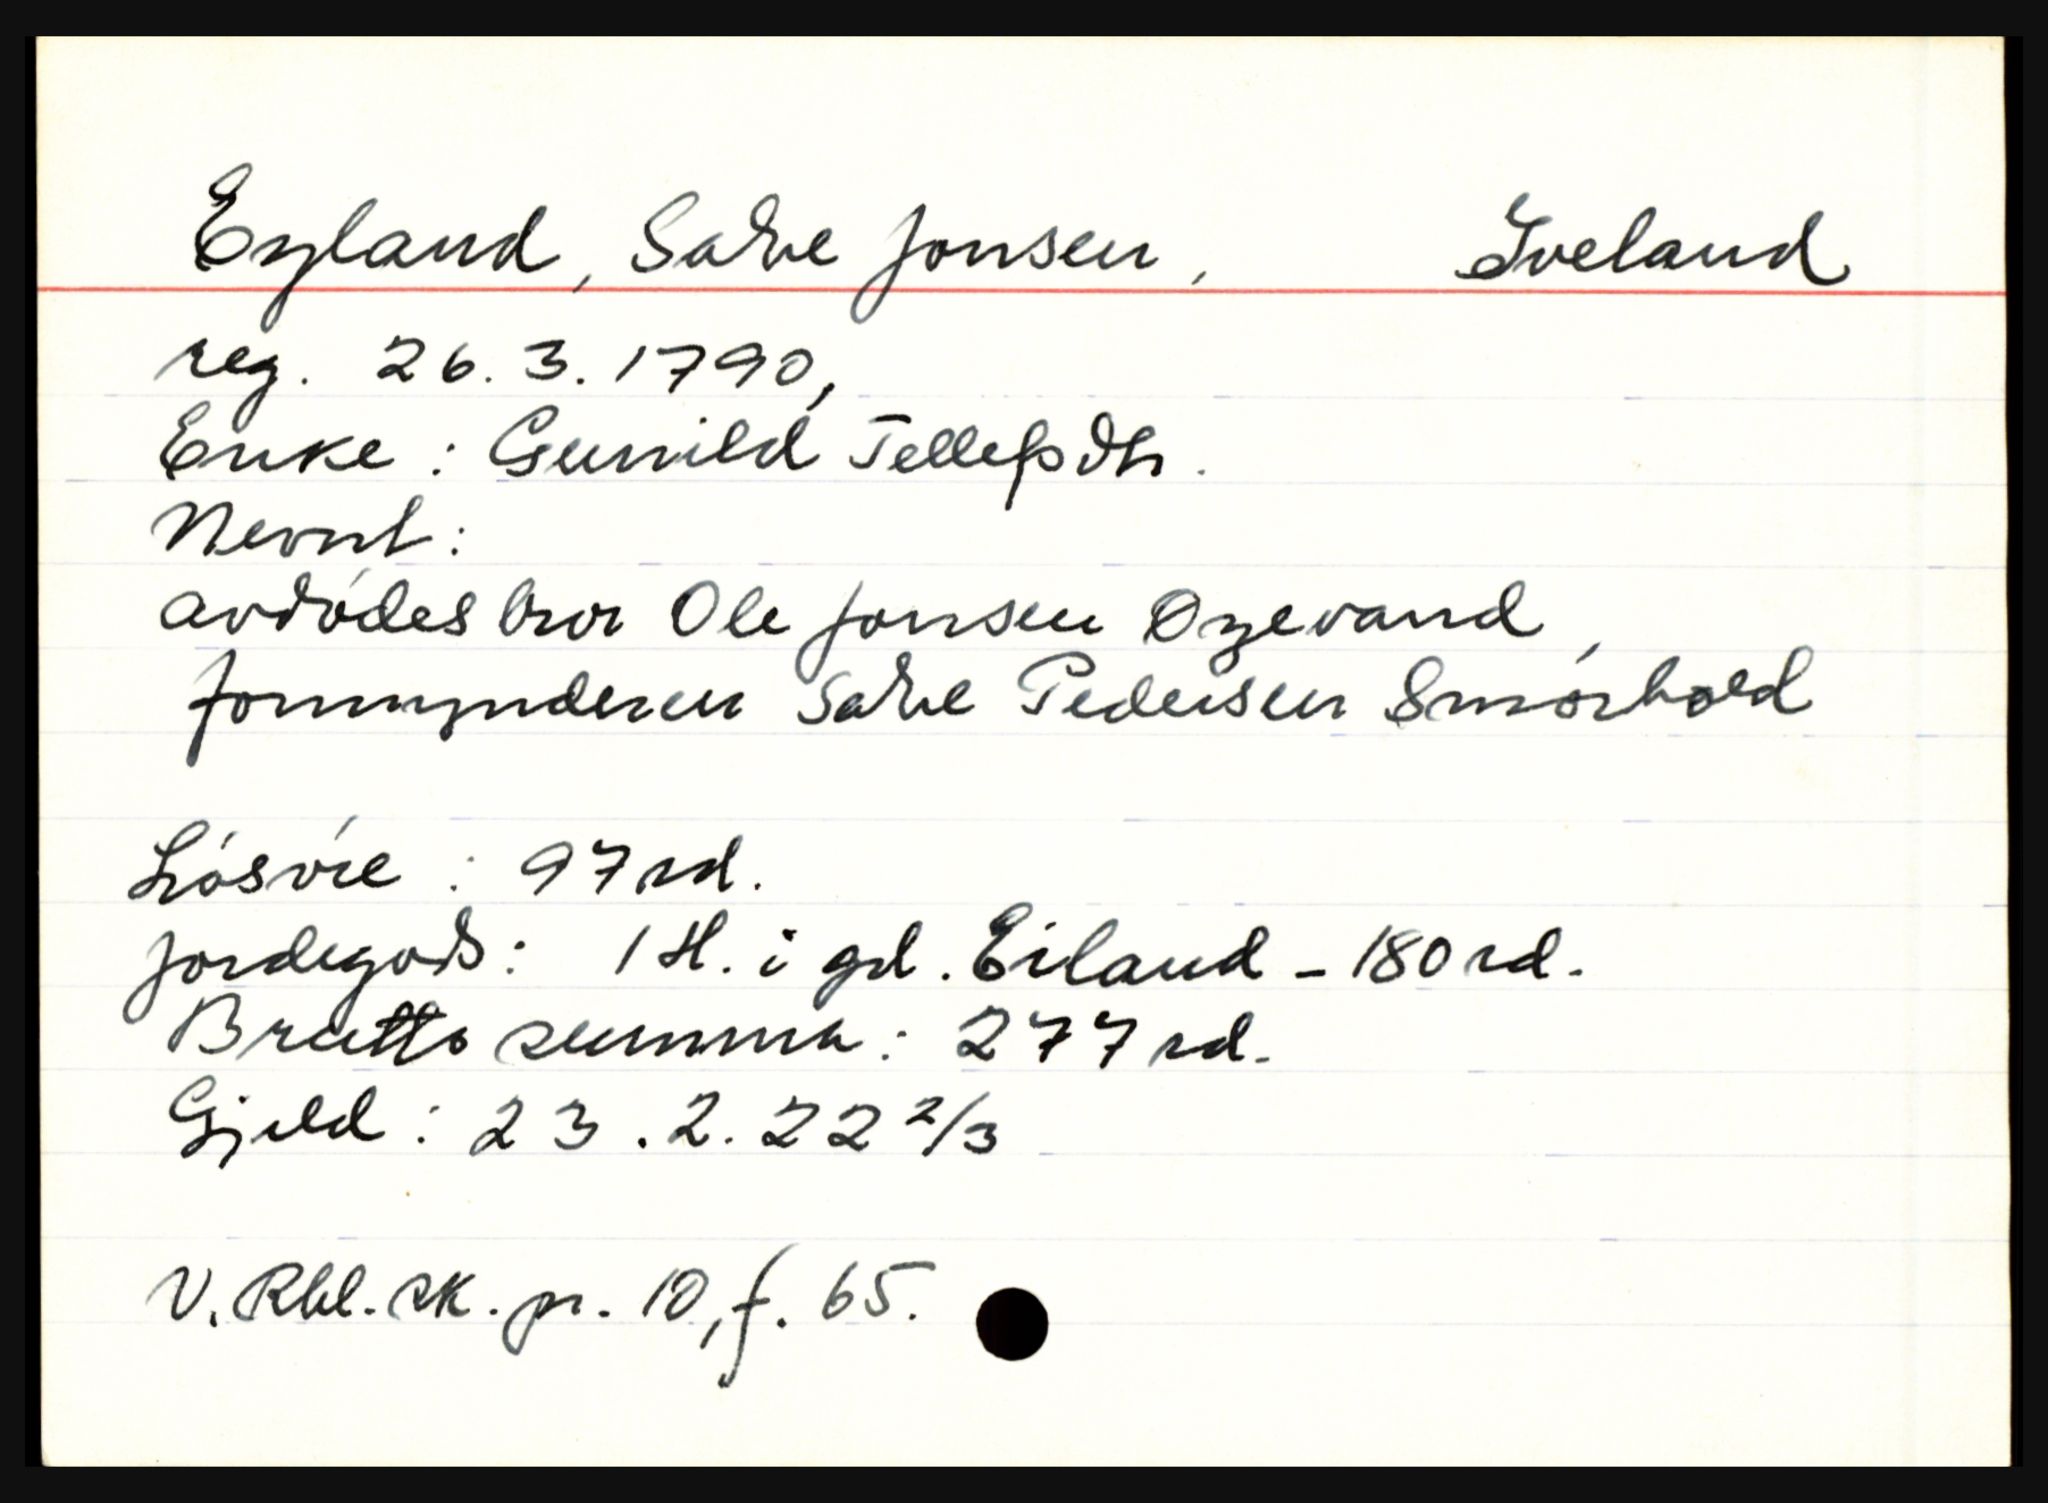 Eyland, Salve Jonsen, Iveland
reg. 26.3.1790,
Enke: Gunild Tellefsdtr.
Nevnt:
avdødes bror Ole Jonsen Øyevand,
formynderen Salve Pedersen Smørhold
Løsøre: 97 rd.
Jordegods: 1 H. i gd. Eiland - 180 rd.
Brutto summa: 277 rd.
Gjeld: 23.2.22 2/3
V. Rbl. sk. pr. 10, f. 65.